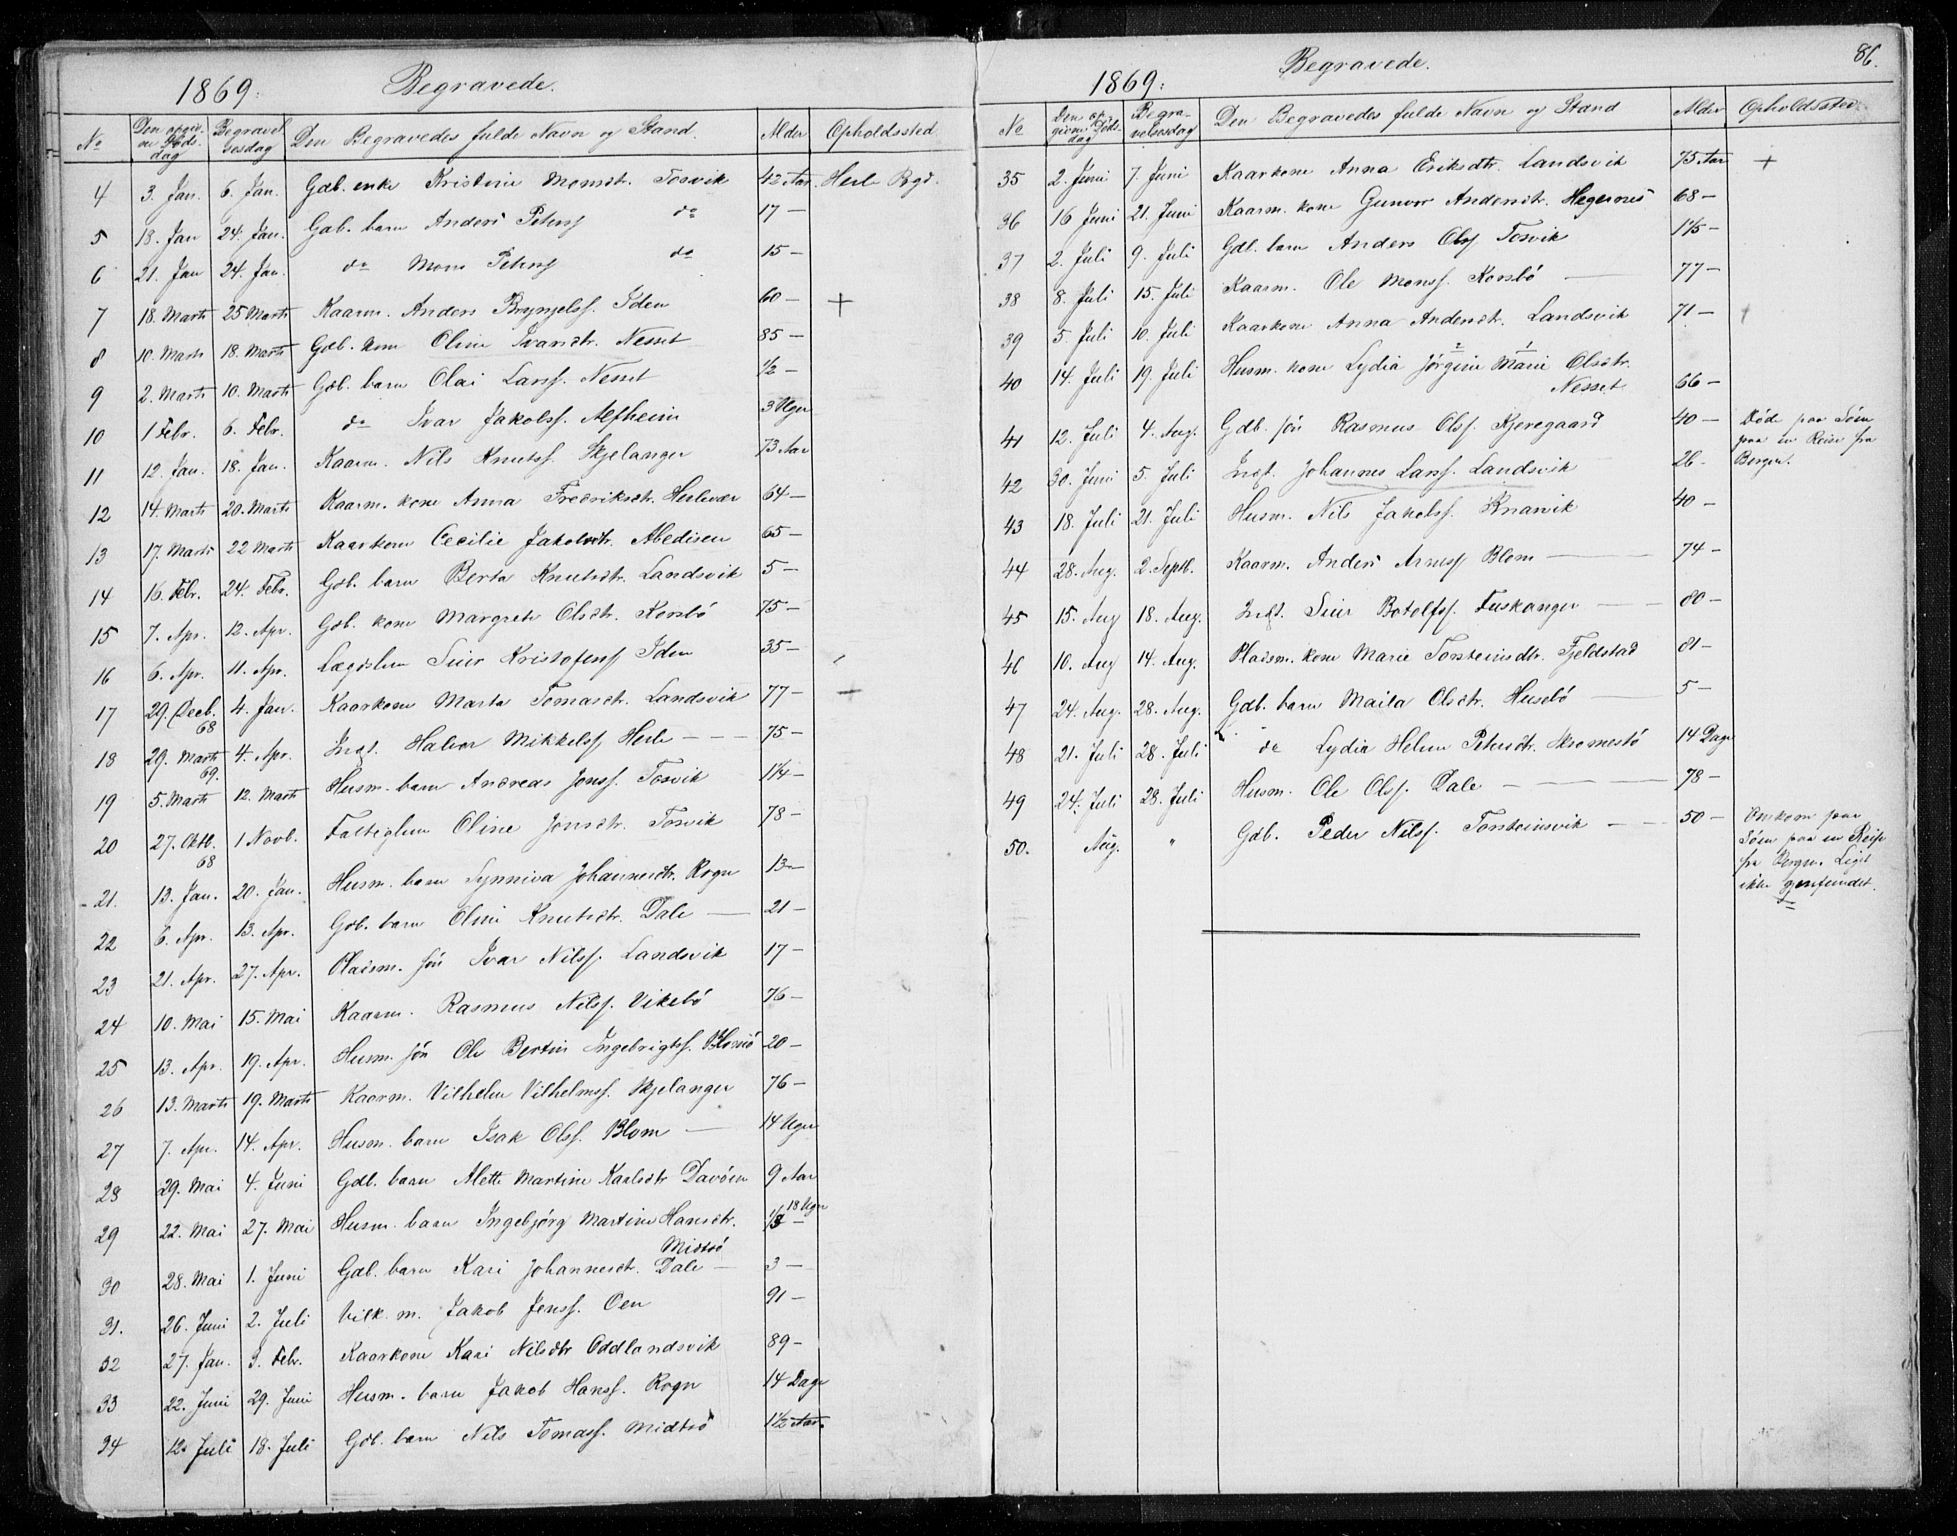 1869. Begravede.
No Den opgivne Døds-dag Begravelsesdag Den Begravedes fulde Navn og Stand Alder Opholdssted
4 3. Jan. 6. Jan. Gdb. enke Kristine Monsdtr. Tosvik 42 Aar Herlø Bgd.
5 18. Jan 24. Jan. Gab. barn Anders Peters do 17 —
6 21. Jan 24. Jan. do Mons Peters do 15 —
7 18. Marts 25 Marts Kaarm. Anders Brynjelss. Iden 60 — +
8 10. Marts 18. Marts Gdb. kone Oline Ivarsdtr. Nesset 85 —
9 2. Marts 10. Marts Gdb. barn Olai Larss. Nesset 1/2 —
10 1 Febr. 6. Febr. do Ivar Jakobss. Alfheim 3 Uger
11 12. Jan. 18. Jan. Kaarm. Nils Knutss. Skjelanger 73 Aar
12 14. Marts 20. Marts Kaarm. kone Anna Fredriksdtr. Herlevær 64 —
13 17. Marts 22 Marts Kaarkone Cecilie Jakobsdtr. Abedissen 65 —
14 16. Febr. 24. Febr. Gdb. barn Berta Knutsdtr. Landsvik 5 —
15 7. Apr. 12. Apr. Gdb. kone Margrete Olsdtr. Korsbö 75 —
16 6. Apr. 11. Apr. Lægdslem Siur Kristofers Iden 35 —
17 29. Decb. 68 4. Jan. Kaarkone Marta Tomasdtr. Landsvik 77 — —
18 29. Marts 69. 4. Apr. Indt. Halvor Mikkelss Herlø — — — 75 —
19 5. Marts 12. Marts Husm. barn Andreas Jonss. Tosvik 1 1/4 —
20 27. Oktb. 68 1 Novb. Fattiglem Oline Jonsdtr. Tosvik 78 —
21. 13. Jan. 20. Jan. Husm. barn Synniva Johannesdtr. Rogn 13 —
22 6. Apr. 13. Apr. Gdb. barn Oline Knutsdtr. Dale — 21 —
23 21. Apr. 27. Apr. Pladsm. sön Ivar Nilss. Landsvik 17 —
24 10. Mai 15. Mai Kaarm. Rasmus Nilss. Vikebö 76 —
25 13. Apr. 19. Apr. Husm. sön Ole Bertin Ingebrigtss. Blomö 20 —
26 13. Marts 19. Marts Kaarm. Vilhelm Vilhelmss. Skjelanger 76 —
27 7. Apr. 14. Apr. Husm. barn Isak Olss. Blom — 14 Uger
28 29. Mai 4. Juni Gdb. barn Alette Martine Karlsdtr Davöen 9 Aar
29 22. Mai 27. Mai Husm. barn Ingebjörg Martine Hansdtr. 18 Uger
Midtsö
30 28. Mai 1. Juni Gdb. barn Kari Johannesdtr. Dale — 3 —
31. 26. Juni 2. Juli Vilk. m. Jakob Jenss. Oen 91 —
32 27. Jan. 3. Febr. Kaarkone Kari Nilsdtr Oddlandsvik 89 —
33 22. Juni 29. Juni Husm. barn Jakob Hanss. Rogn 14 Dage
34 12. Juli 18. Juli Gdb. barn Nils Tomass. Midtsö 1 1/2 Aar.
1869. Begravede. 86.
No Den opgivne Dödsdag Begravelsesdag Den Begravedes fulde Navn og Stand Alder Opholdssted
35 2. Juni 7. Juni Kaarkone Anna Eriksdtr. Landsvik 75 Aar +
36 16 Juni 21. Juni Kaarm. kone Gunvor Andersdtr. Hegernes 68 —
37 2. Juli 9. Juli Gdb. barn Anders Olss. Tosvik 1 1/5 —
38 8. Juli 15. Juli Kaarm. Ole Monss. Korsbö — 77 —
39 5. Juli 10. Juli Kaarkone Anna Andersdtr. Landsvik 71 —
40 14. Juli 19. Juli Husm. kone Lydia Jörgine Marie Olsdtr.
Nesset 66 —
41 12. Juli 4. Aug. Gdb. sön Rasmus Olss. Kjeregaard 40 — Död paa Söen
paa en Reise fra
Bergen.
42 30. Juni 5. Juli Indt. Johannes Larss. Landsvik 26 —
43 18. Juli 21. Juli Husm. Nils Jakobss. Knarvik 40 —
44 28. Aug. 2. Septb. Kaarm. Anders Arness Blom — 74 —
45 15. Aug 18. Aug. Indt. Siur Botolfss. Fuskanger — 80 —
46 10. Aug 14. Aug. Pladsm. kone Marie Torsteinsdtr. Fjeldstad 81 —
47 24. Aug. 28. Aug. Gdb. barn Maila Olsdtr. Husebö — 5 —
48 21. Juli 28. Juli do Lydia Helene Petersdtr. Skromestö 14 Dage
49 24. Juli 28. Juli Husm. Ole Olss. Dale — 78 —
50. Aug. " Gdb. Peder Nilss. Torsteinsvik — 50 — Omkom paa
Söen paa en Reise
fra Bergen. Liget
ikke gjenfundet.